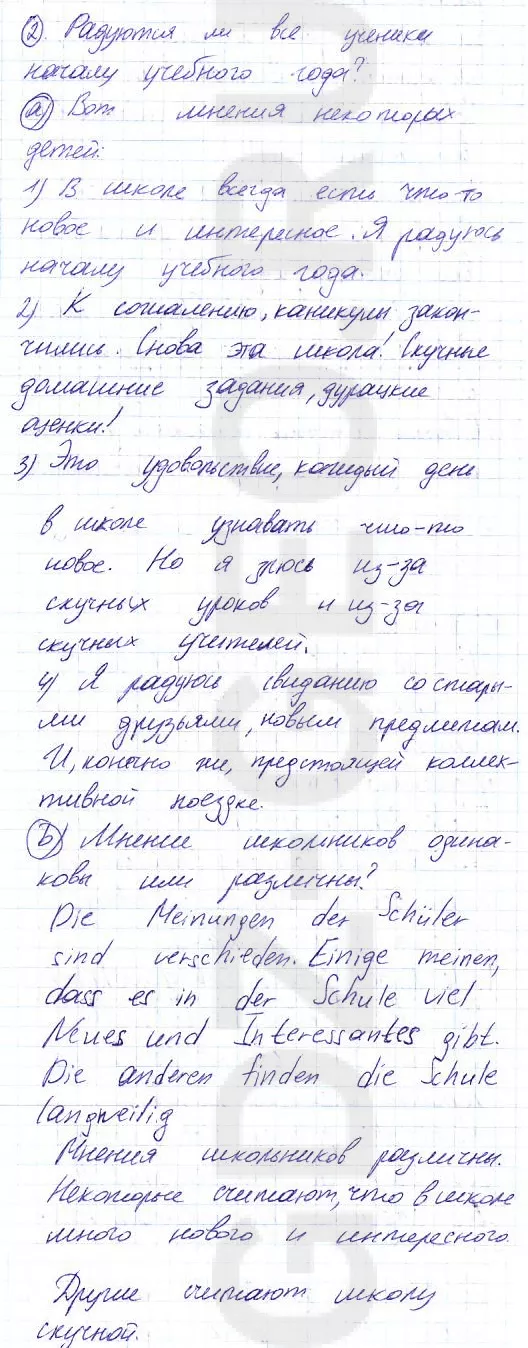 2. Радуются ли все ученики
началу учебного года?
a) Вот мнения некоторых
детей:
1) В школе всегда есть что-то
новое и интересное. Я радуюсь
началу учебного года.
2) К сожалению, каникулы закон-
чились. Снова эта школа! Скучные
домашние задания, дурацкие
оценки!
3) Это удовольствие, каждый день
в школе узнавать что-то
новое. Но я злюсь из-за
скучных уроков и из-за
скучных учителей.
4) Я радуюсь свиданию со стары-
ми друзьями, новым предметам.
И, конечно же, предстоящей коллек-
тивной поездке.
b) Мнение школьников одина-
ковы или различны?
Die Meinungen der Schüler
sind verschieden. Einige meinen,
dass es in der Schule viel
Neues und Interessantes gibt.
Die anderen finden die Schule
langweilig
Мнения школьников различны.
Некоторые считают, что в школе
много нового и интересного.
Другие считают школу
скучной.
GDZ-GEO.RU